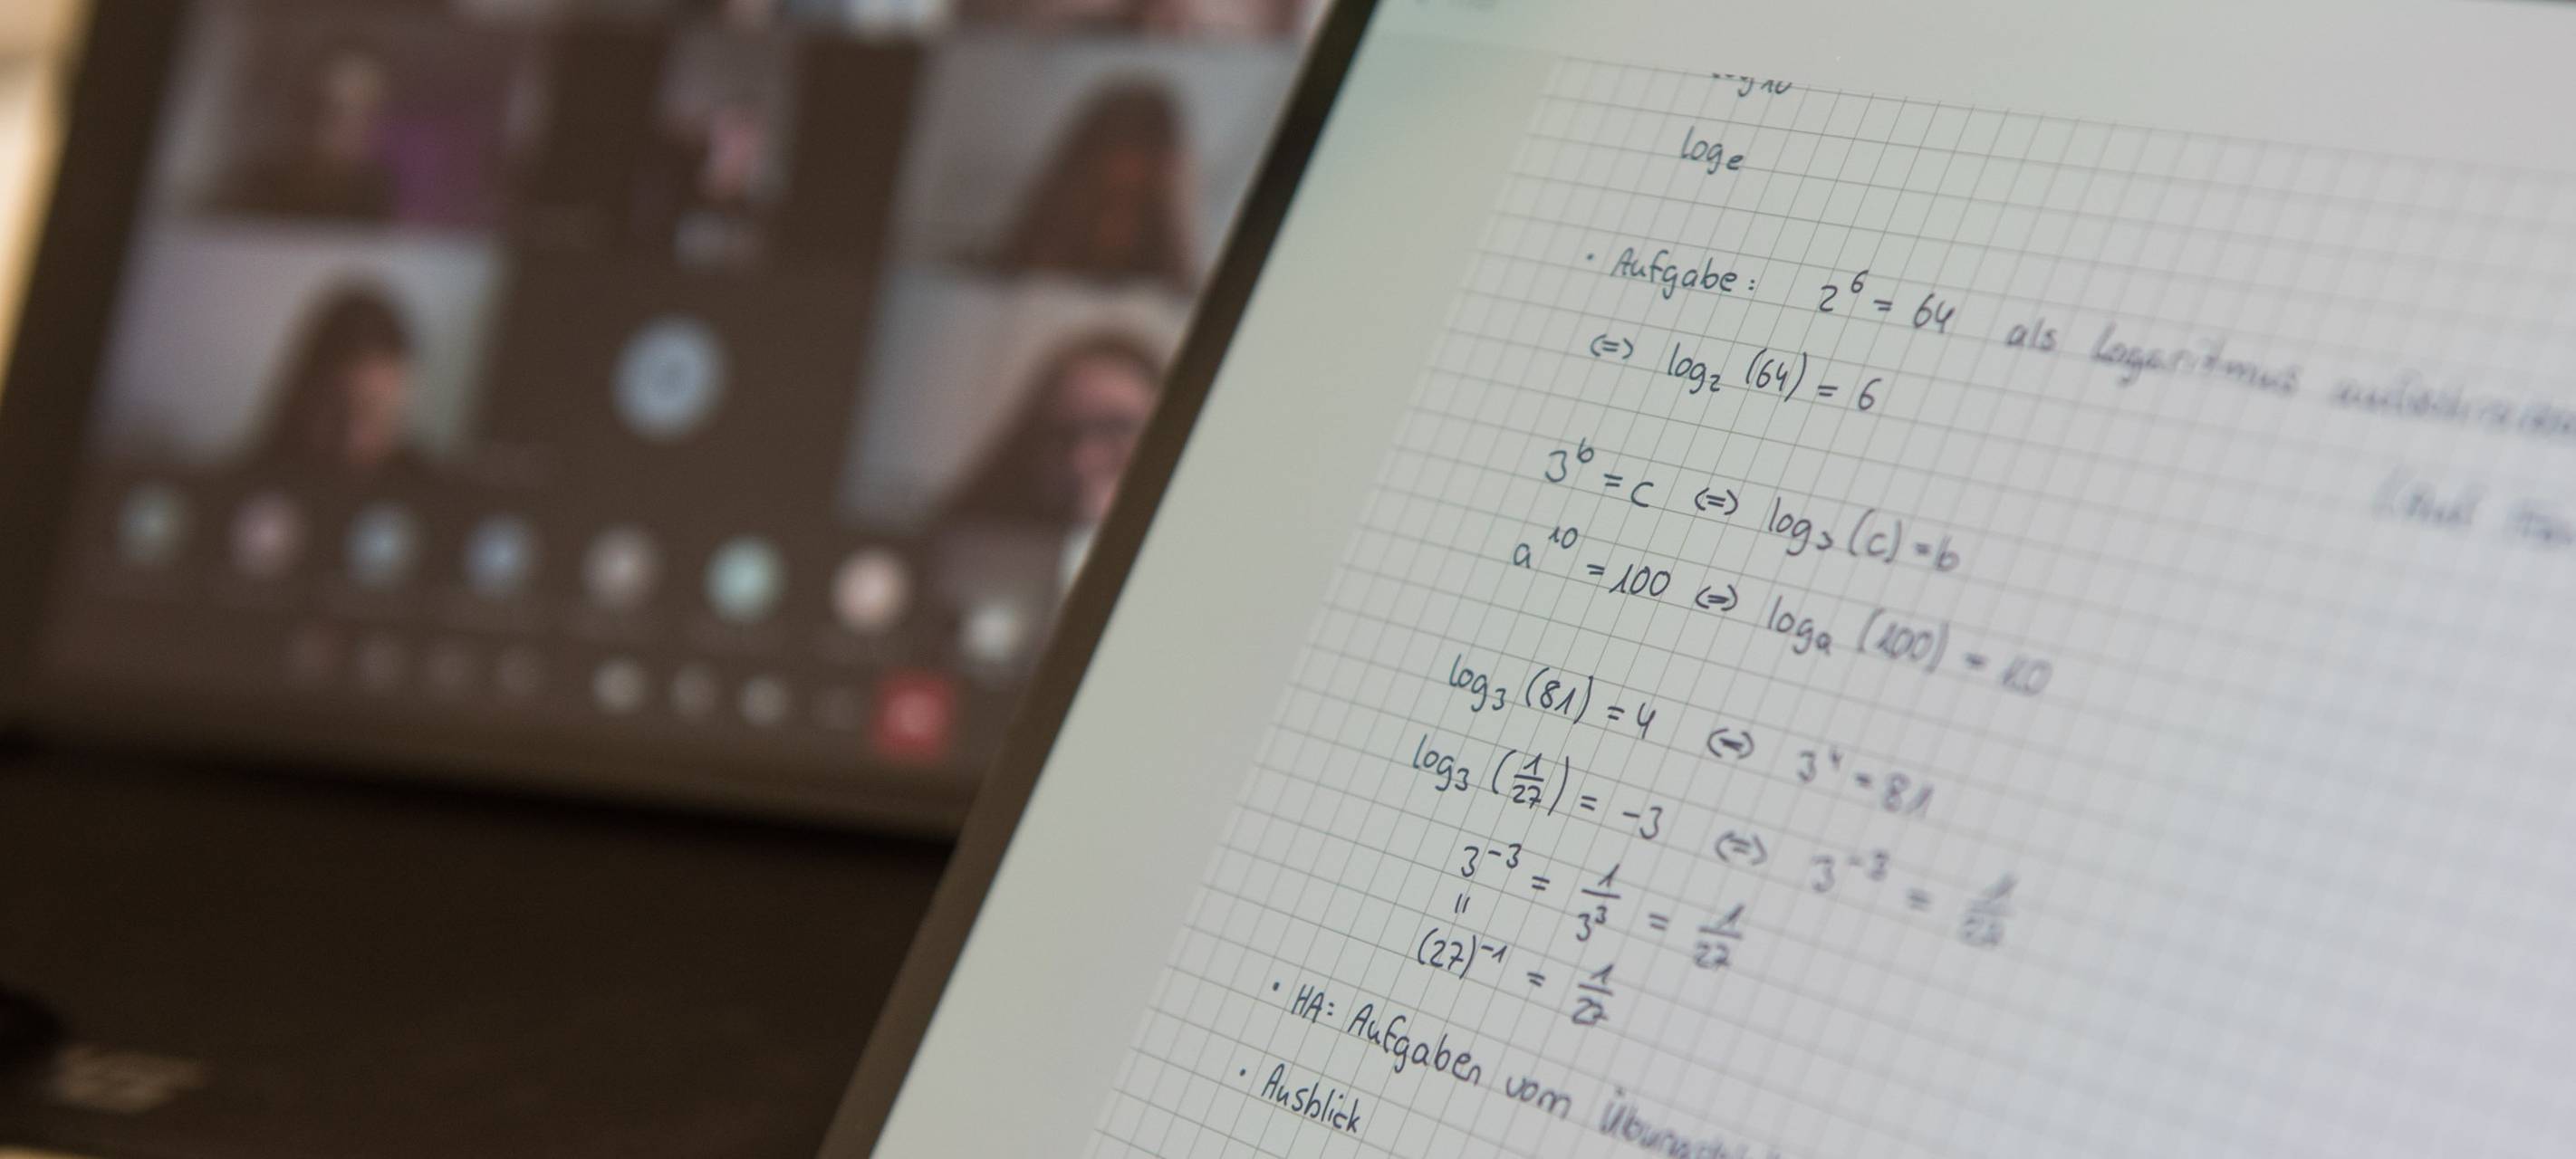 log10
loge
· Aufgabe: 2⁶ = 64 als Logarithmus
(=) log₂ (64) = 6
3ᵇ = c (=) log₃ (c) = b
a¹⁰ = 100 (=) logₐ (100) = 10
log₃ (81) = 4 (=) 3⁴ = 81
log₃ (1/27) = -3 (=) 3⁻³ = 1/27
3⁻³ = 1/3³ = 1/27
"
(27)⁻¹ = 1/27
· HA: Aufgaben vom
· Ausblick